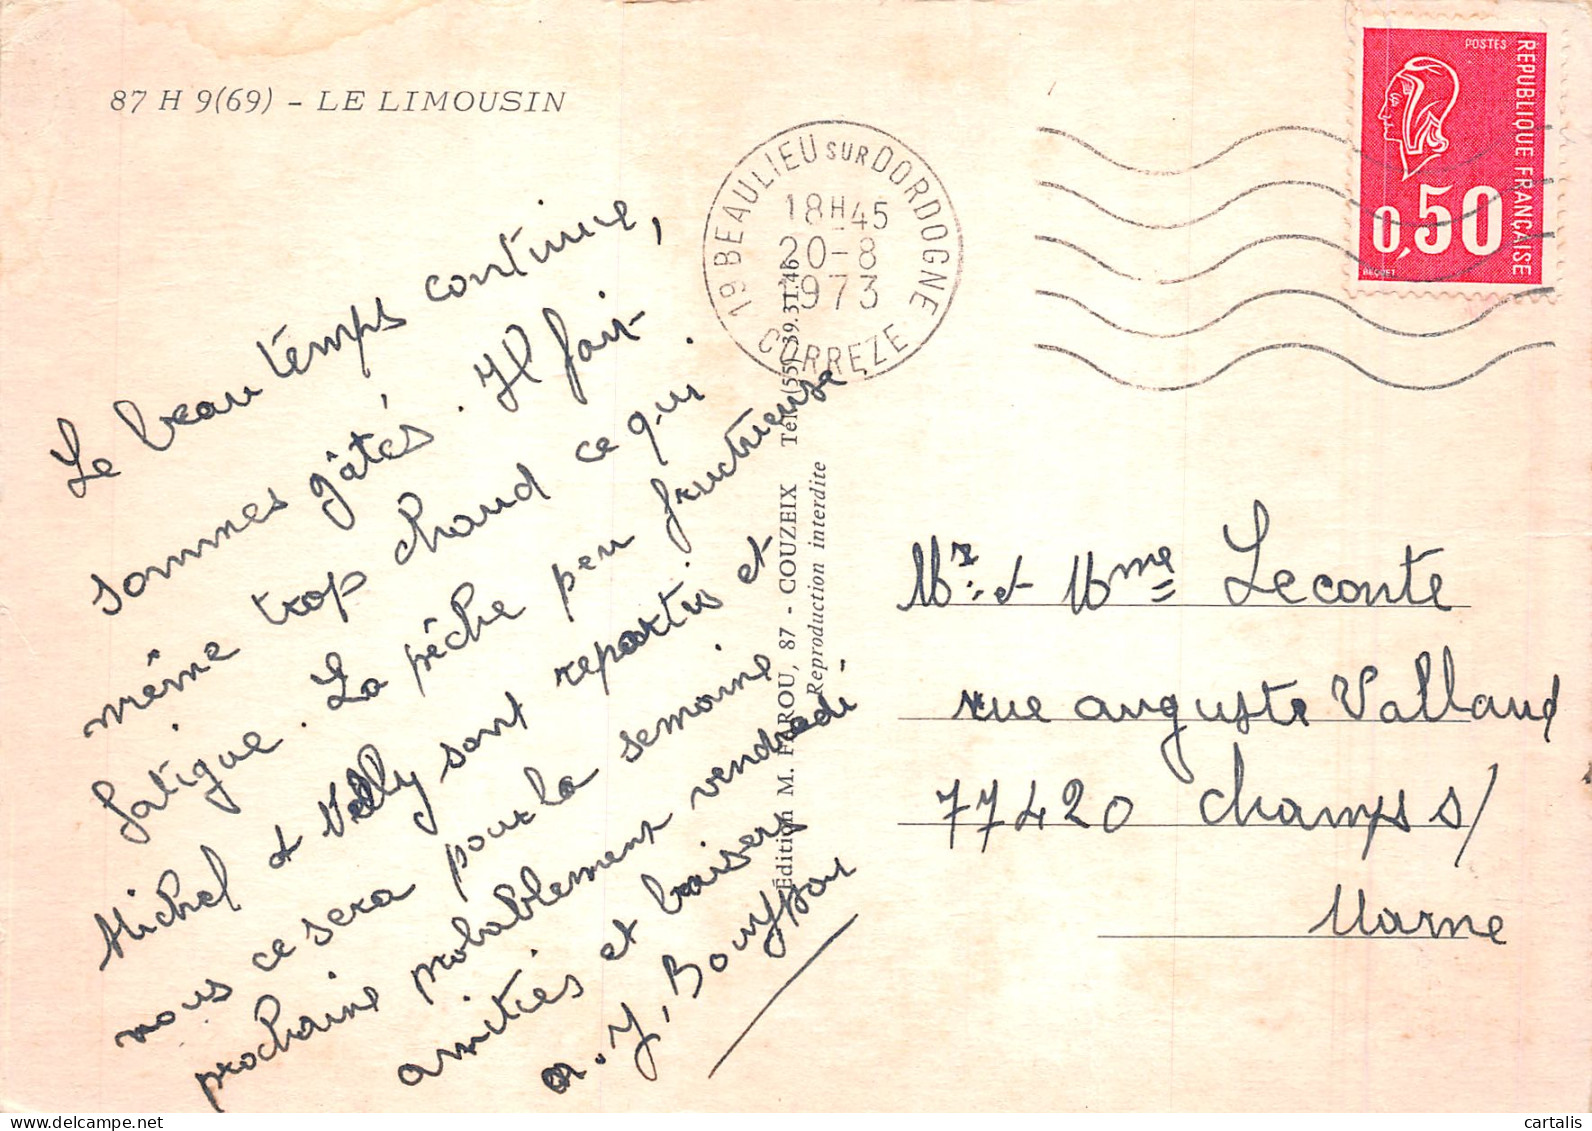 87 H 9(69) - LE LIMOUSIN
Le beau temps continue,
sommes gâtés. Il fait
même trop chaud ce qui
fatigue. La pêche peu fructueuse
Michel et Nelly sont repartis et
nous ce sera pour la semaine
prochaine probablement vendredi -
amitiés et baisers
J. Bouyssou
19 BEAULIEU SUR DORDOGNE
18H45
20-8
1973
CORREZE
POSTES
REPUBLIQUE FRANÇAISE
0,50
BEQUET
Édition M. FARROU, 87 - COUZEIX Tél. (55) 39.31.46
Reproduction interdite
Mr. et Mme Leconte
rue auguste Valland
77420 Champs s/
Marne
www.delcampe.net
cartalis